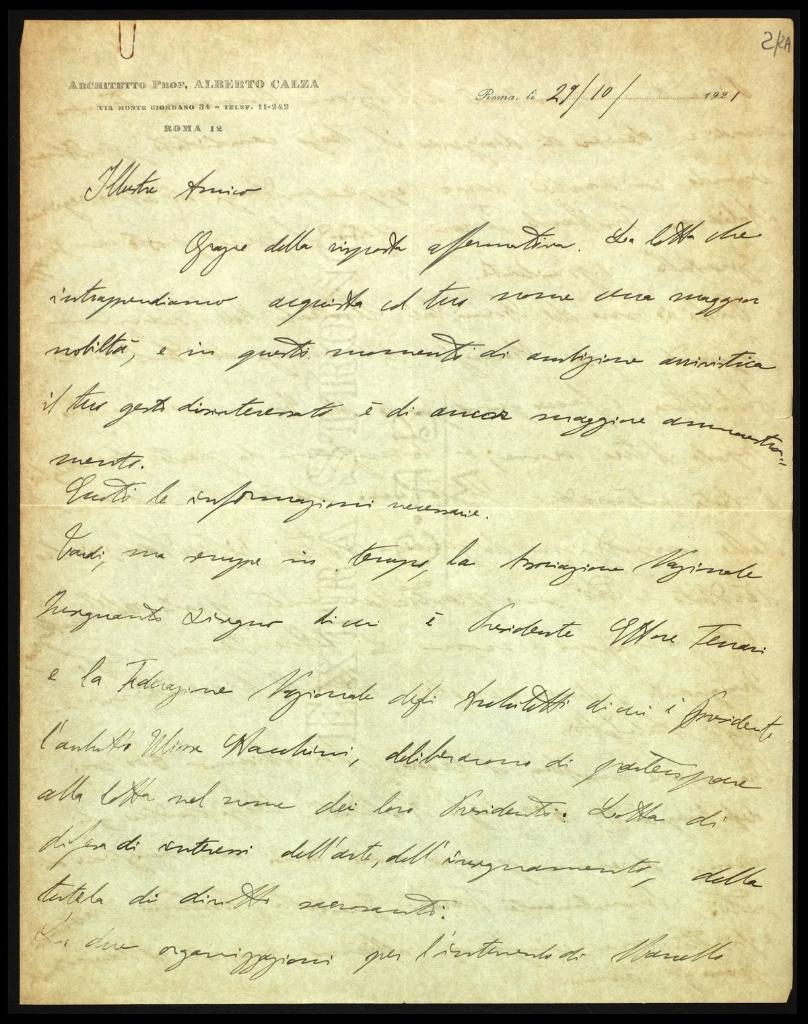 2/2A
ARCHITETTO PROF. ALBERTO CALZA
VIA MONTE GIORDANO 34 - TELEF. 11-242
ROMA 12
Roma, li 29/10/ 1921
Illustre Amico
Grazie della risposta affermativa. La lotta che
intraprendiamo acquista col tuo nome una maggior
nobiltà, e in questi momenti di ambizione arrivistica
il tuo gesto disinteressato è di ancor maggiore ammaestra=
mento.
Eccoti le informazioni necessarie.
Tardi, ma sempre in tempo, la Associazione Nazionale
Insegnanti Disegno di cui è Presidente Ettore Ferrari
e la Federazione Nazionale degli Architetti di cui è Presidente
l'architetto Ulisse Stacchini, deliberarono di partecipare
alla lotta nel nome dei loro Presidenti. Lotta di
difesa di interessi dell'arte, dell'insegnamento, della
tutela di diritti sacrosanti.
Le due organizzazioni per l'intervento di Marcello